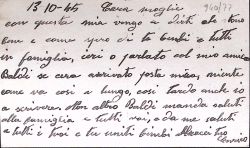 13-10-45 Cara moglie 940/77
con questa mia vengo a dirti che sono
bene e come spero di te bimbi e tutti
in famiglia, ieri o parlato col mio amico
Baldi se cera arrivato posta mia, niente
come va cosi a lungo, così tardo anche io
a scrivere altro Baldi manda saluti
alla famiglia e tutti voi, e da me saluti
a tutti i tuoi e tu uniti bimbi